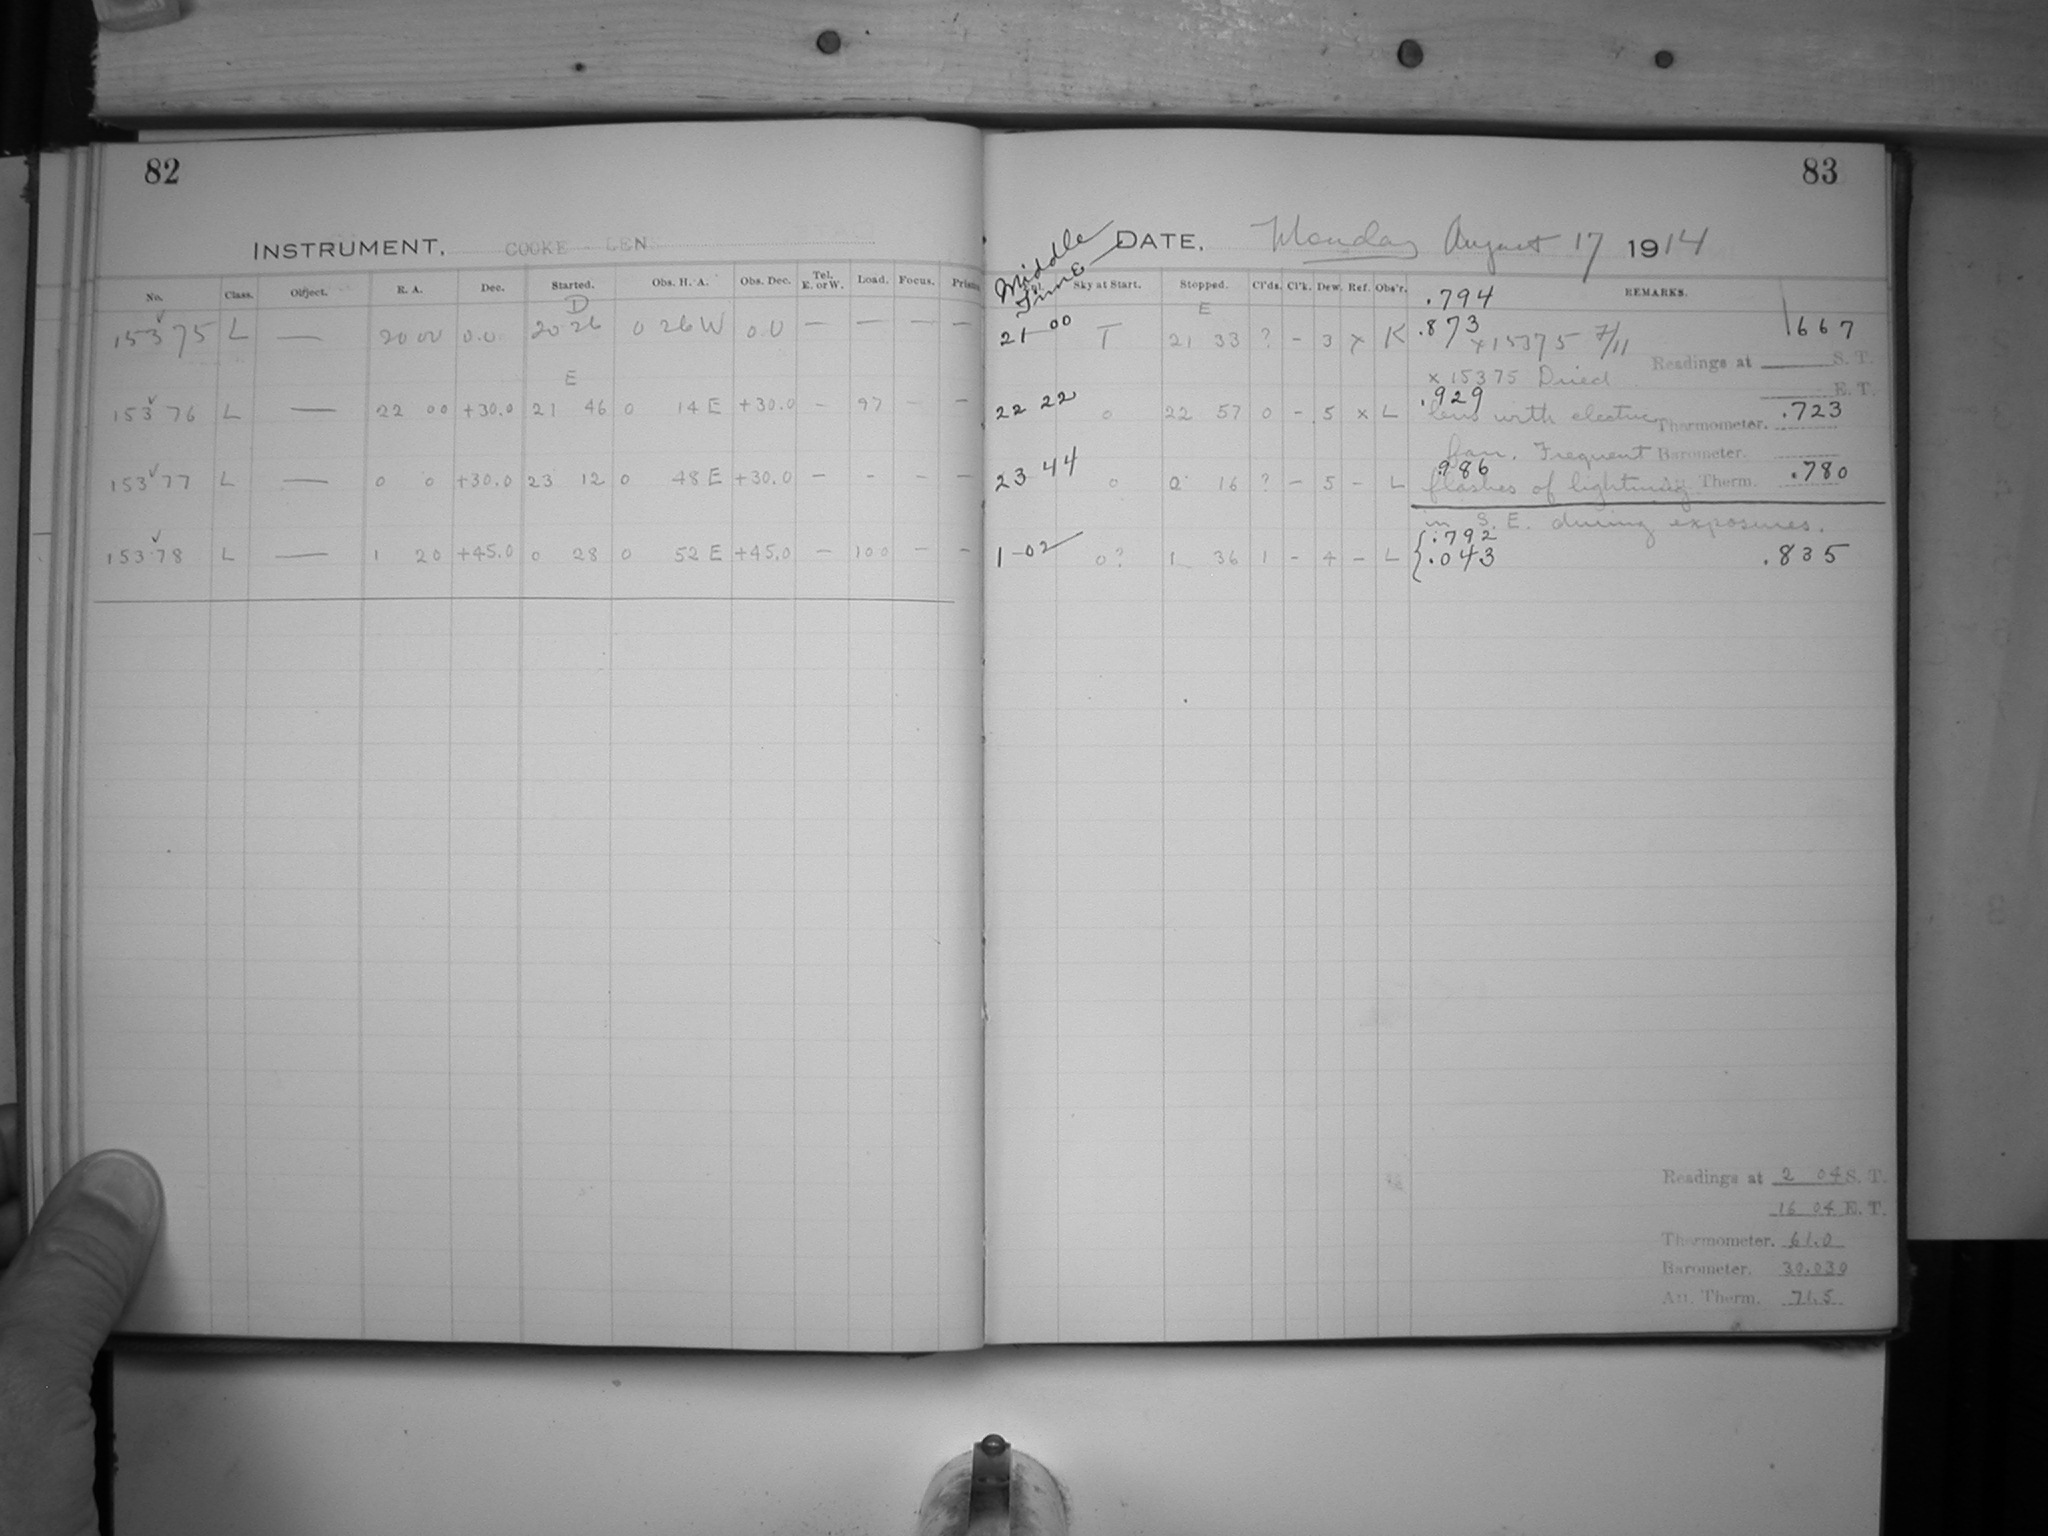 82
INSTRUMENT, COOKE LENS
No. Class. Object. R. A. Dec. Started. Obs. H. A. Obs. Dec. Tel. E. or W. Load. Focus. Prism
D
15375 L — 20 00 0.0 20 26 0 26 W 0.0 — — — —
E
15376 L — 22 00 +30.0 21 46 0 14 E +30.0 — 97 — —
15377 L — 0 0 +30.0 23 12 0 48 E +30.0 — - — —
15378 L — 1 20 +45.0 0 28 0 52 E +45.0 — 100 — —
83
Middle Time DATE, Monday August 17 1914
Sky at Start. Stopped. Cl'ds. Cl'k. Dew. Ref. Obs'r. REMARKS.
.794
E
21-00 T 21 33 ? - 3 x K .873 x15375 7/11 1667
Readings at S. T.
x 15375 Dried
E. T.
.929
22 22 0 22 57 0 - 5 x L lens with electric Thermometer. .723
fan. Frequent Barometer.
.986
23 44 0 0 16 ? - 5 - L flashes of lightning Therm. .780
in S. E. during exposures.
.792
1-02 0? 1 36 1 - 4 - L .043 .835
Readings at 2 04 S. T.
16 04 E. T.
Thermometer. 61.0
Barometer. 30.030
Att. Therm. 71.5